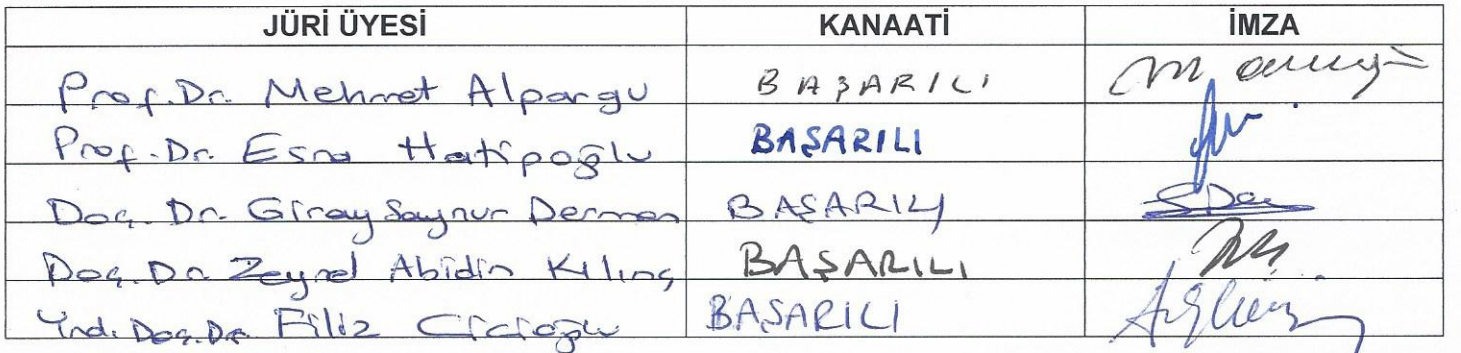 JÜRİ ÜYESİ KANAATİ İMZA
Prof. Dr. Mehmet Alpargu BAŞARILI
Prof. Dr. Esra Hatipoğlu BAŞARILI
Doç. Dr. Giray Saynur Derman BAŞARILI
Doç. Dr. Zeynel Abidin Kılınç BAŞARILI
Yrd. Doç. Dr. Filiz Cicioğlu BAŞARILI